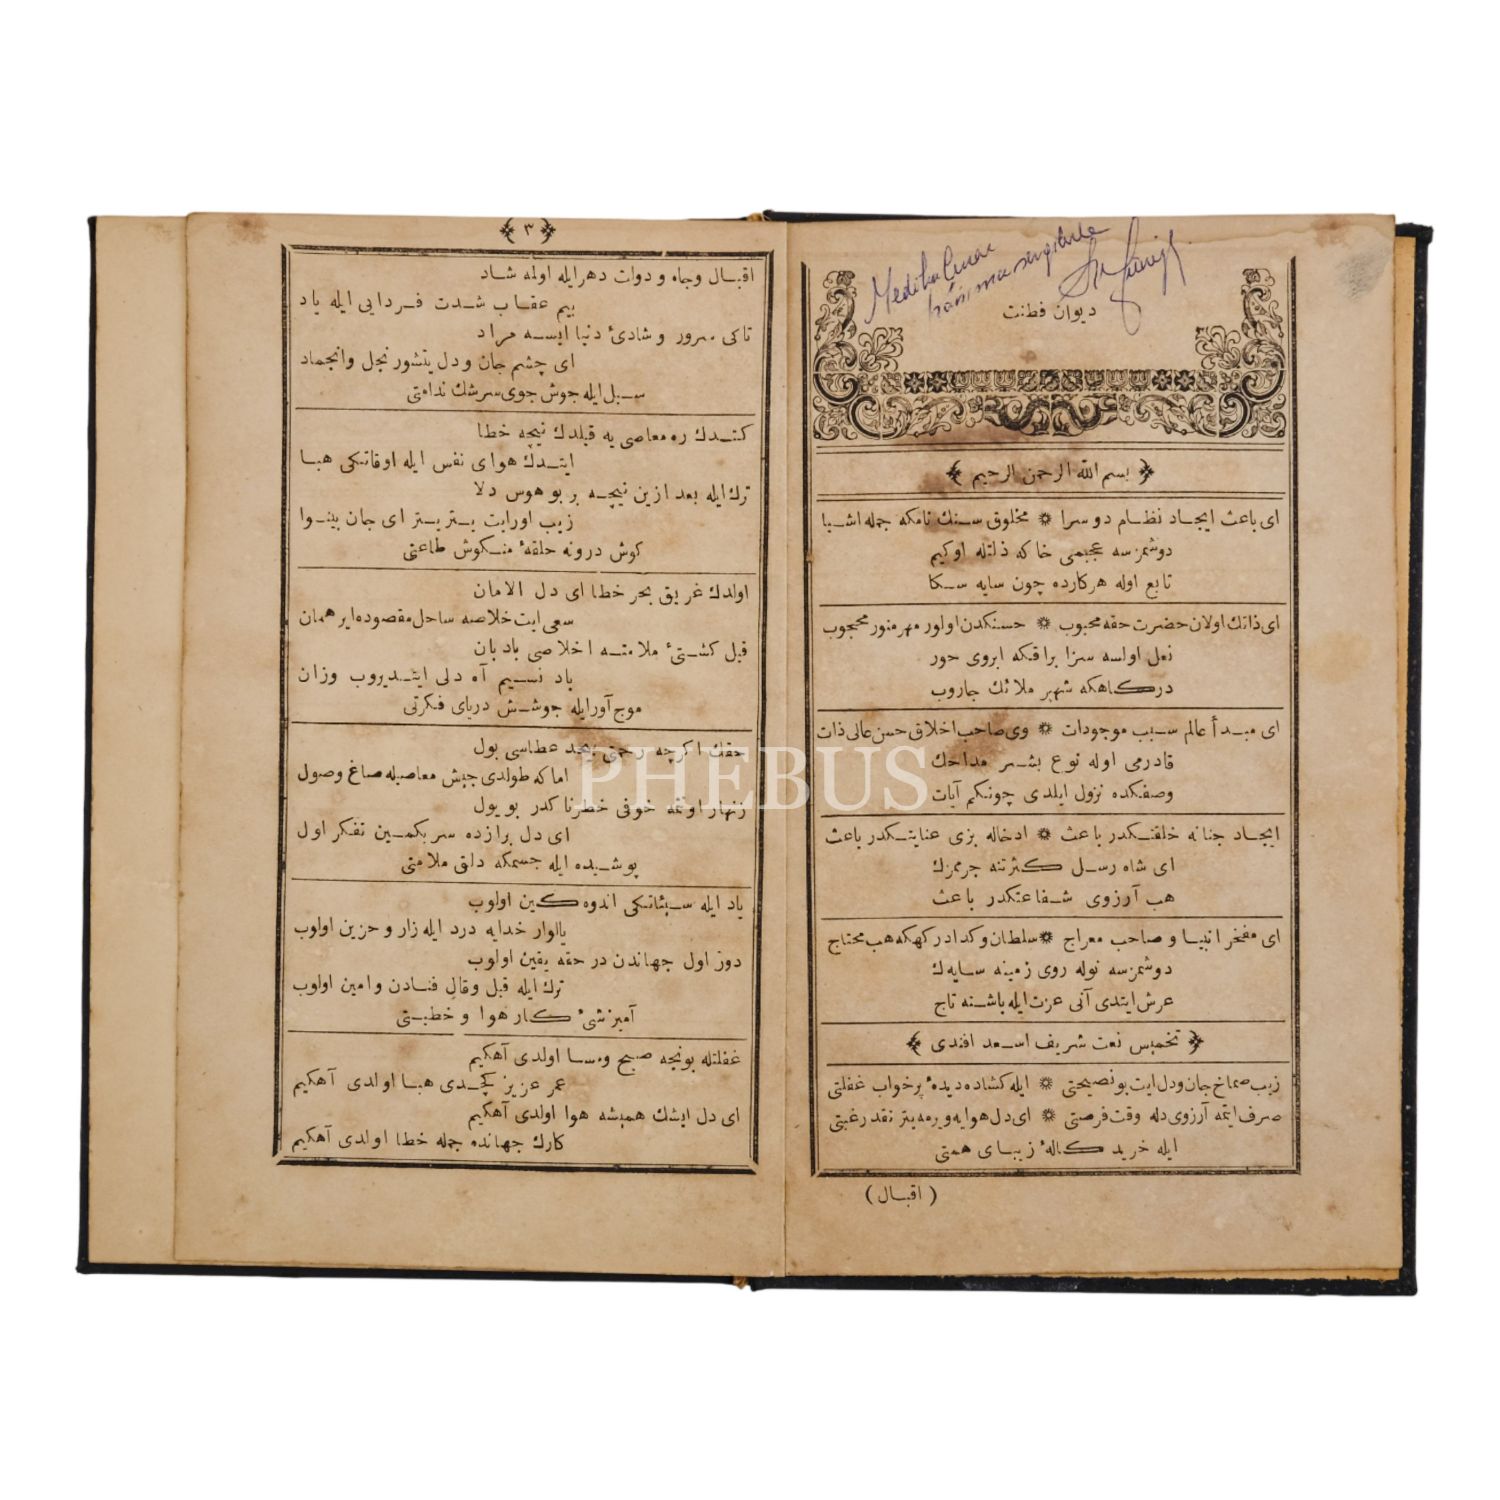 دیوان فطنت
بسم الله الرحمن الرحیم
ای باعث ایجاد نظام دوسرا ❋ مخلوق سنك نامكه جمله اشیا
دوشمزسه عجبمی خاكه ذلتله اوكیم
تابع اوله هركارده چون سایه سكا
ای ذاتك اولان حضرت حقه محبوب ❋ حسنكدن اولور مهر منور محجوب
نعل اولسه سزا براقكه ابروی حور
دركاهكه شهپر ملائك جاروب
ای مبدأ عالم سبب موجودات ❋ وی صاحب اخلاق حسن عالی ذات
قادرمی اوله نوع بشر مداحك
وصفكده نزول ایلدی چونكم آیات
ایجاد جنانه خلقتكدر باعث ❋ ادخاله بزی عنایتكدر باعث
ای شاه رسل كثرتنه جرممزك
هب آرزوی شفاعتكدر باعث
ای مفخر انبیا و صاحب معراج ❋ سلطان وكدا دركهكه هب محتاج
دوشمزسه نوله روی زمینه سایه‌ك
عرش ایتدی آنی عزت ایله باشنه تاج
تخمیس نعت شریف اسعد افندی
زیب صماخ جان ودل ایت بو نصیحتی ❋ ایله كشاده دیدهٔ پرخواب غفلتی
صرف ایتمه آرزوی دله وقت فرصتی ❋ ای دل هوایه ویرمه یتر نقد رغبتی
ایله خرید كالهٔ زیبای همتی
( اقبال )
٣
اقبال وجاه و دولت دهر ایله اولمه شاد
بیم عقاب شدت فردایی ایله یاد
تاكی سرور و شادیٔ دنیا ایسه مراد
ای چشم جان و دل
سبل ایله جوش جوی سرشك ندامتی
كتدك ره معاصی یه قیلدك نیچه خطا
ایتدك هوای نفس ایله اوقاتكی هبا
ترك ایله بعد ازین نیچه بر بو هوس دلا
زیب اورایت یتر یتر ای جان بینوا
كوش درونه حلقهٔ منكوش طاعتی
اولدك غریق بحر خطا ای دل الامان
سعی ایت خلاصه ساحل مقصوده ایر همان
قیل كشتیٔ ملامته اخلاصی بادبان
باد نسیم آه دلی ایتدیروب وزان
موج آور ایله جوشش دریای فكرتی
حقك اكرچه رحمتی بیحد عطاسی بول
اماكه طولدی جیبش معاصیله صاغ وصول
زنهار اوتمه خوفی خطرناكدر بو یول
ای دل برازده سر بكمین تفكر اول
پوشیده ایله جسمكه دلق ملامتی
یاد ایله سیئاتكی اندوهكین اولوب
یالوار خدایه درد ایله زار و حزین اولوب
دوز اول جهاندن در حقه یقین اولوب
ترك ایله قیل وقال فنادن وامین اولوب
آمیزشیٔ كار هوا و خطیتی
غفلتله بونجه صبح ومسا اولدی آهكیم
عمر عزیز كچدی هبا اولدی آهكیم
ای دل ایشك همیشه هوا اولدی آهكیم
كارك جهانده جمله خطا اولدی آهكیم
PHEBUS